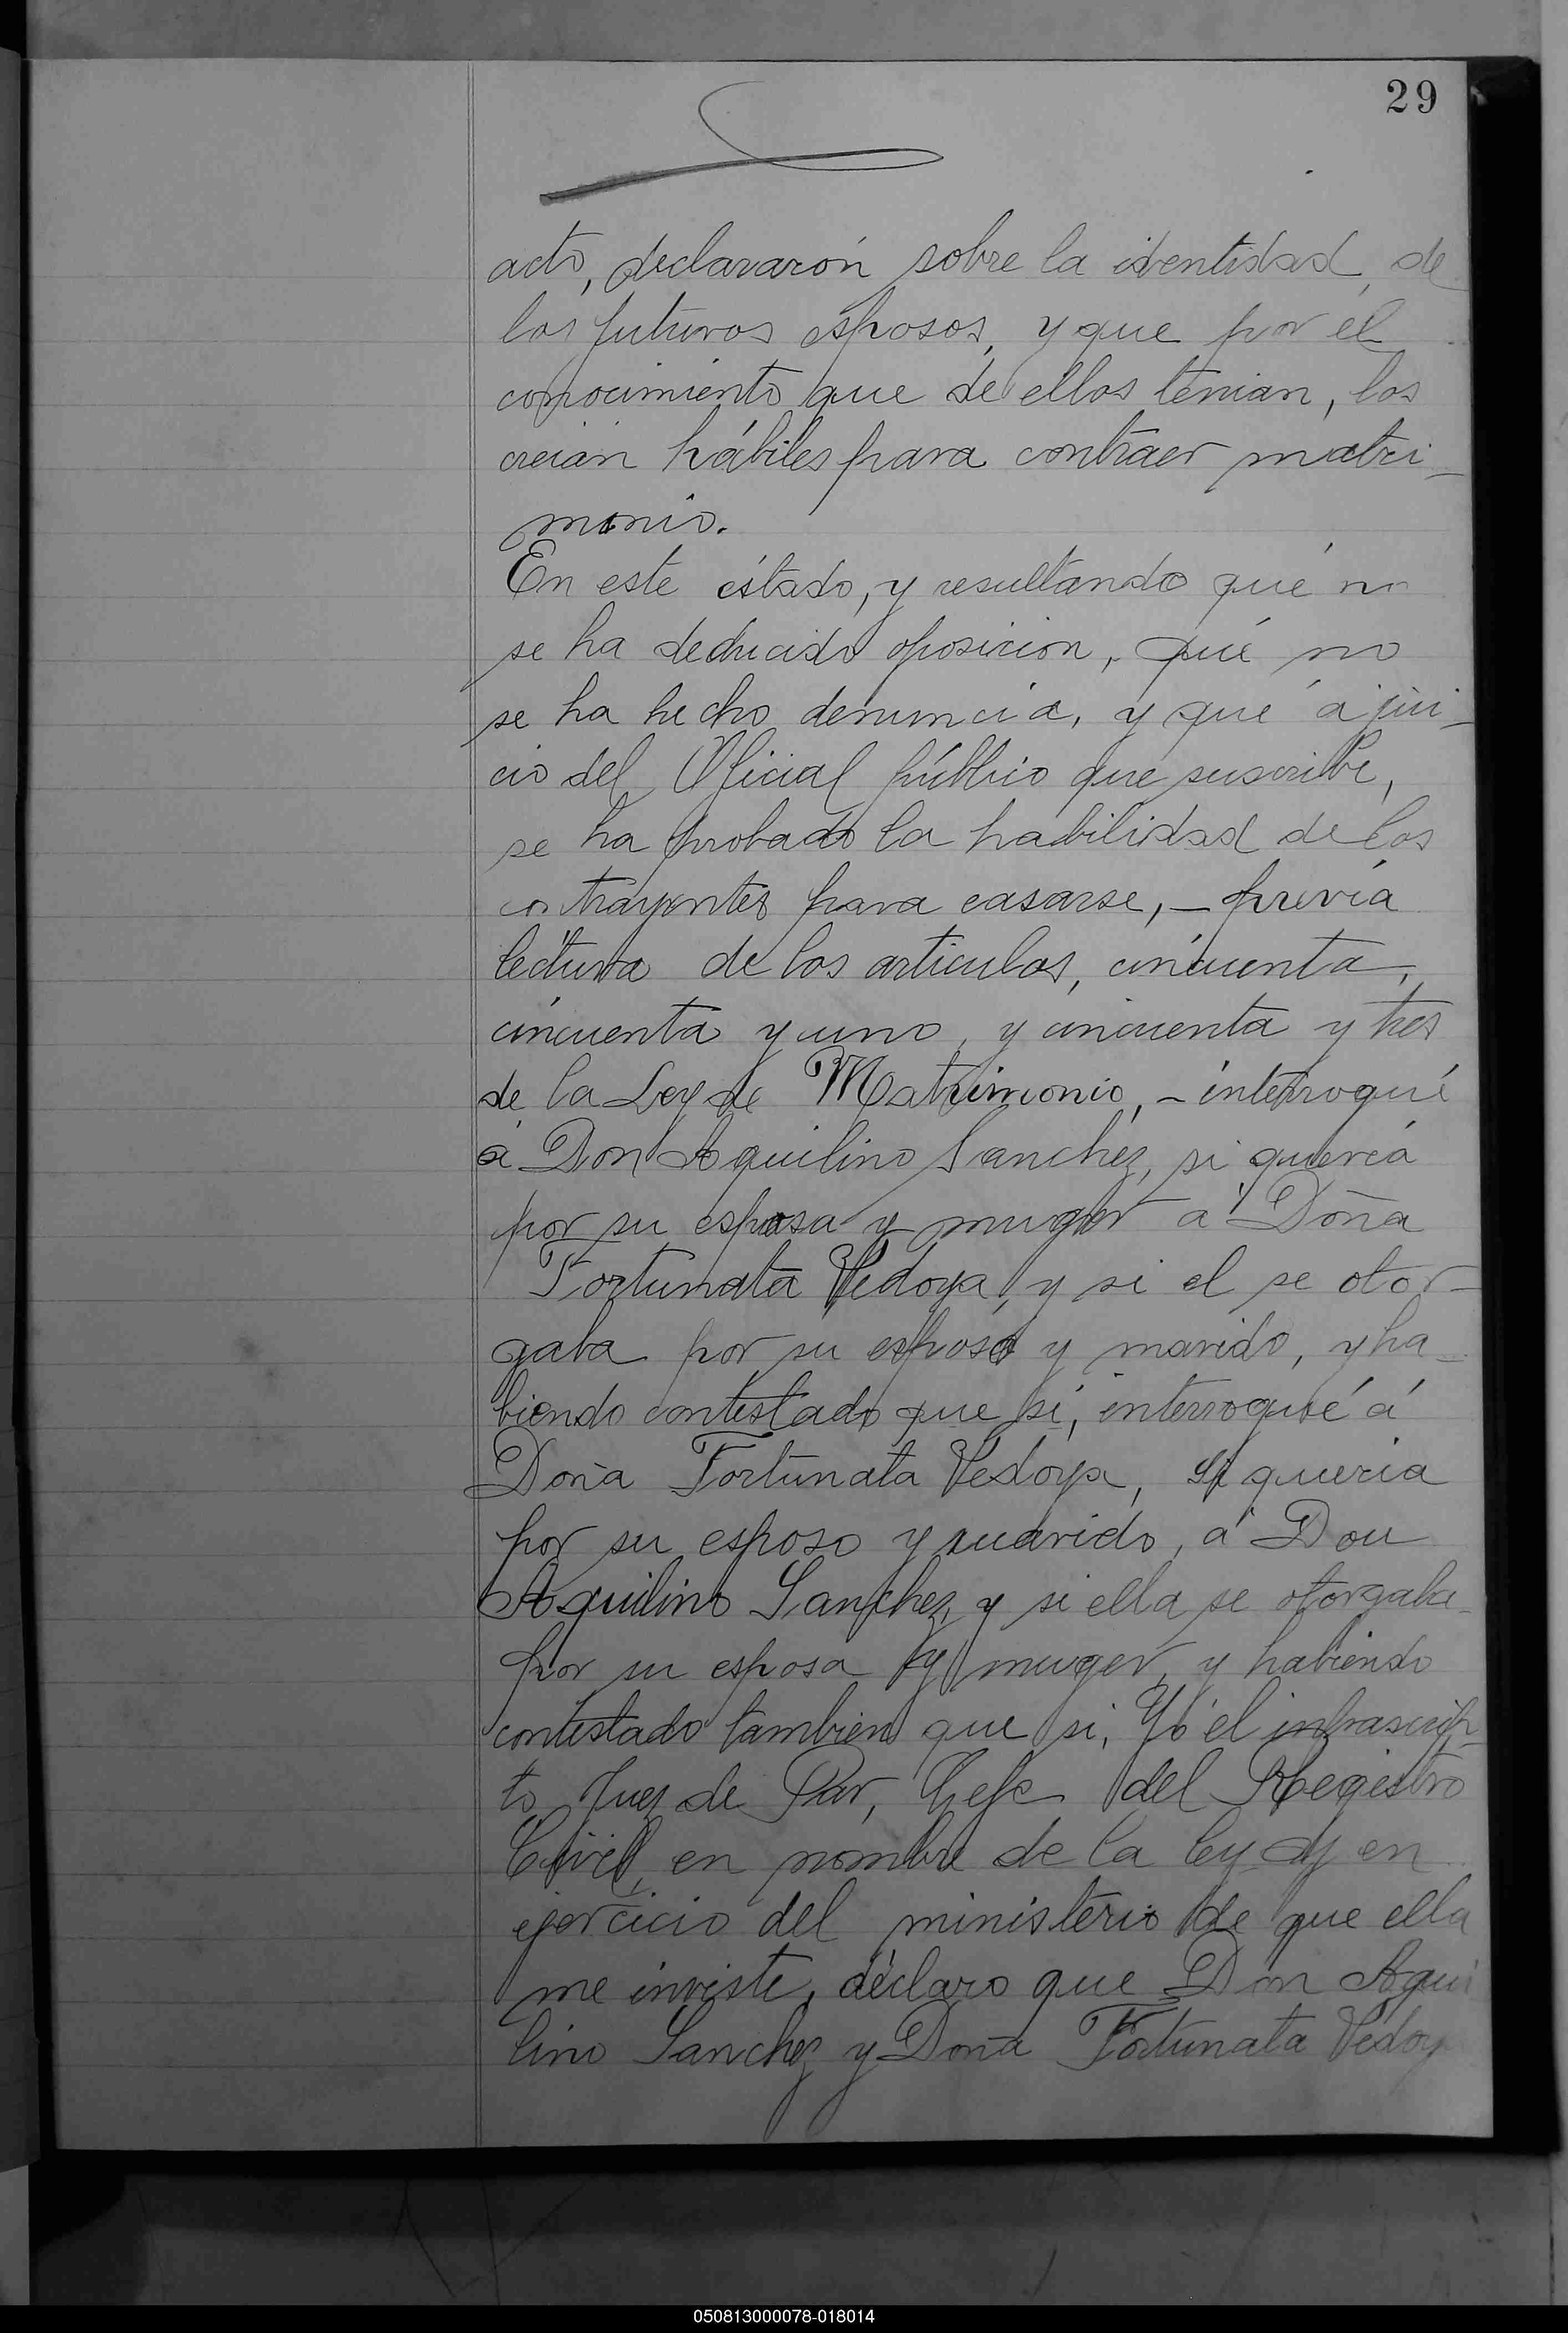 29
acto, declararón sobre la identidad de
los futuros esposos, y que por el
conocimiento que de ellos tenian, los
creian hábiles para contraer matri-
monio.
En este estado, y resultando que no
se ha deducido oposicion, que no
se ha hecho denuncia, y que á jui-
cio del Oficial público que suscribe,
se ha probado la habilidad de los
contrayentes para casarse, - previa
lectura de los articulos, cincuenta,
cincuenta y uno, y cincuenta y tres
de la Ley de Matrimonio, - interrogué
á Don Aquilino Sanchez, si queria
por su esposa y muger á Doña
Fortunata Vedoya, y si el se otor-
gaba por su esposo y marido, y ha-
biendo contestado que si, interrogué á
Doña Fortunata Vedoya, si queria
por su esposo y marido, á Don
Aquilino Sanchez, y si ella se otorgaba
por su esposa y muger, y habiendo
contestado tambien que si, Yo el infrascrip-
to Juez de Paz, Gefe del Registro
Civil, en nombre de la ley y en
ejercicio del ministerio de que ella
me inviste, declaro que Don Aqui
lino Sanchez y Doña Fortunata Vedoy
050813000078-018014